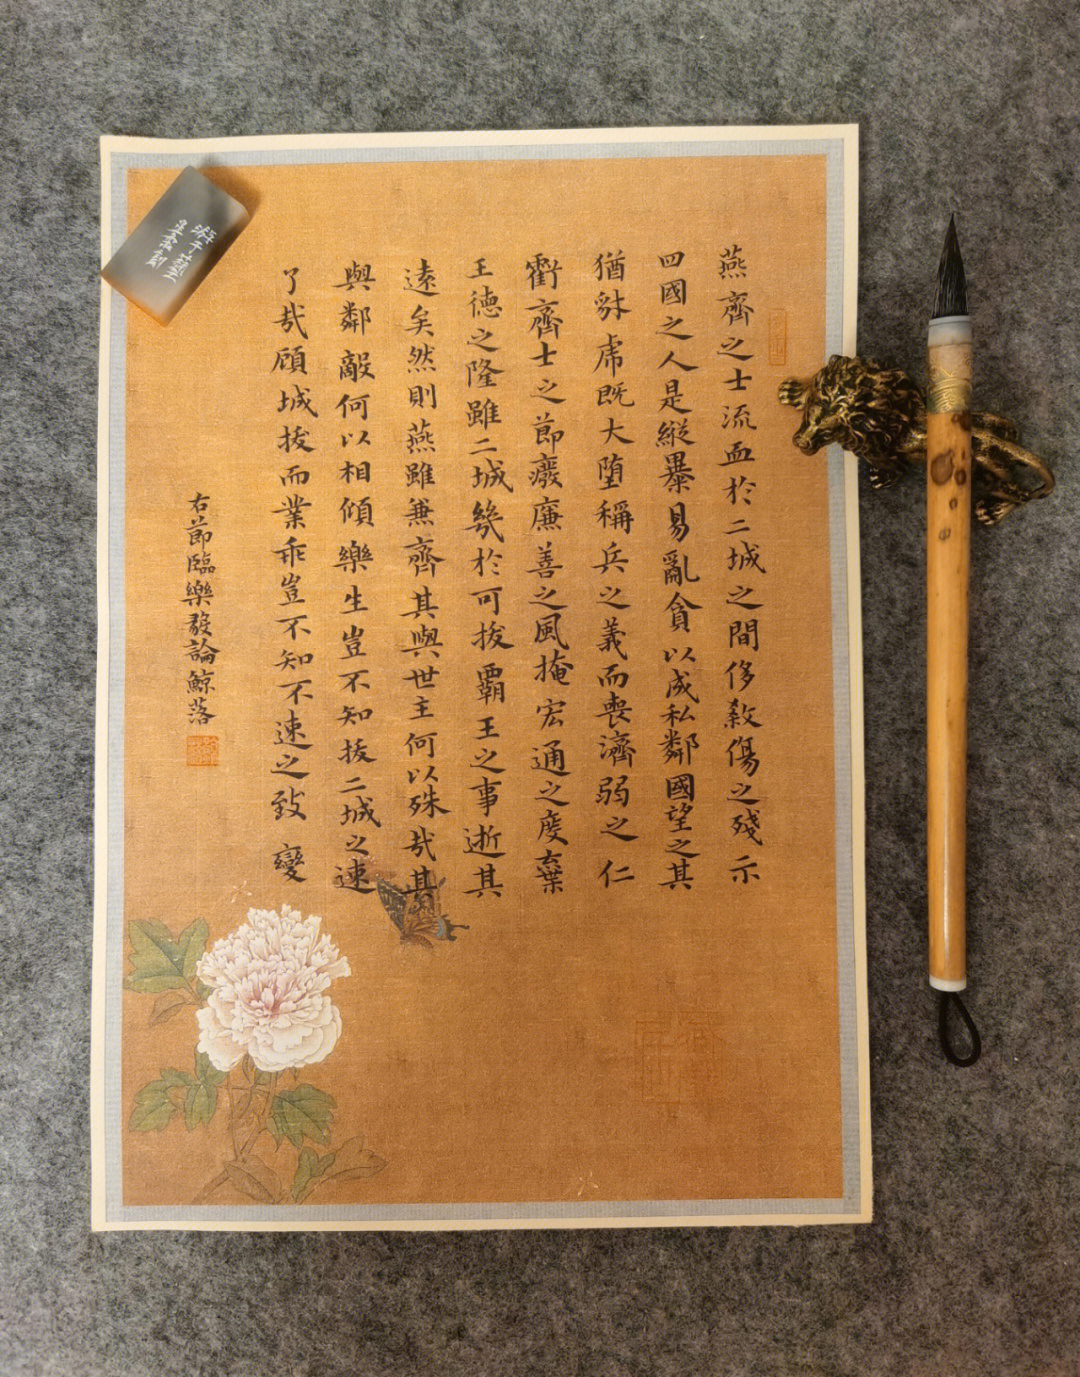 燕齊之士流血於二城之間侈殺傷之殘示
四國之人是縱暴易亂貪以成私鄰國望之其
猶豺虎既大墮稱兵之義而喪濟弱之仁
虧齊士之節廢廉善之風掩宏通之度棄
王德之隆雖二城幾於可拔霸王之事逝其
遠矣然則燕雖兼齊其與世主何以殊哉其
與鄰敵何以相傾樂生豈不知拔二城之速
了哉顧城拔而業乖豈不知不速之致變
右節臨樂毅論鯨落